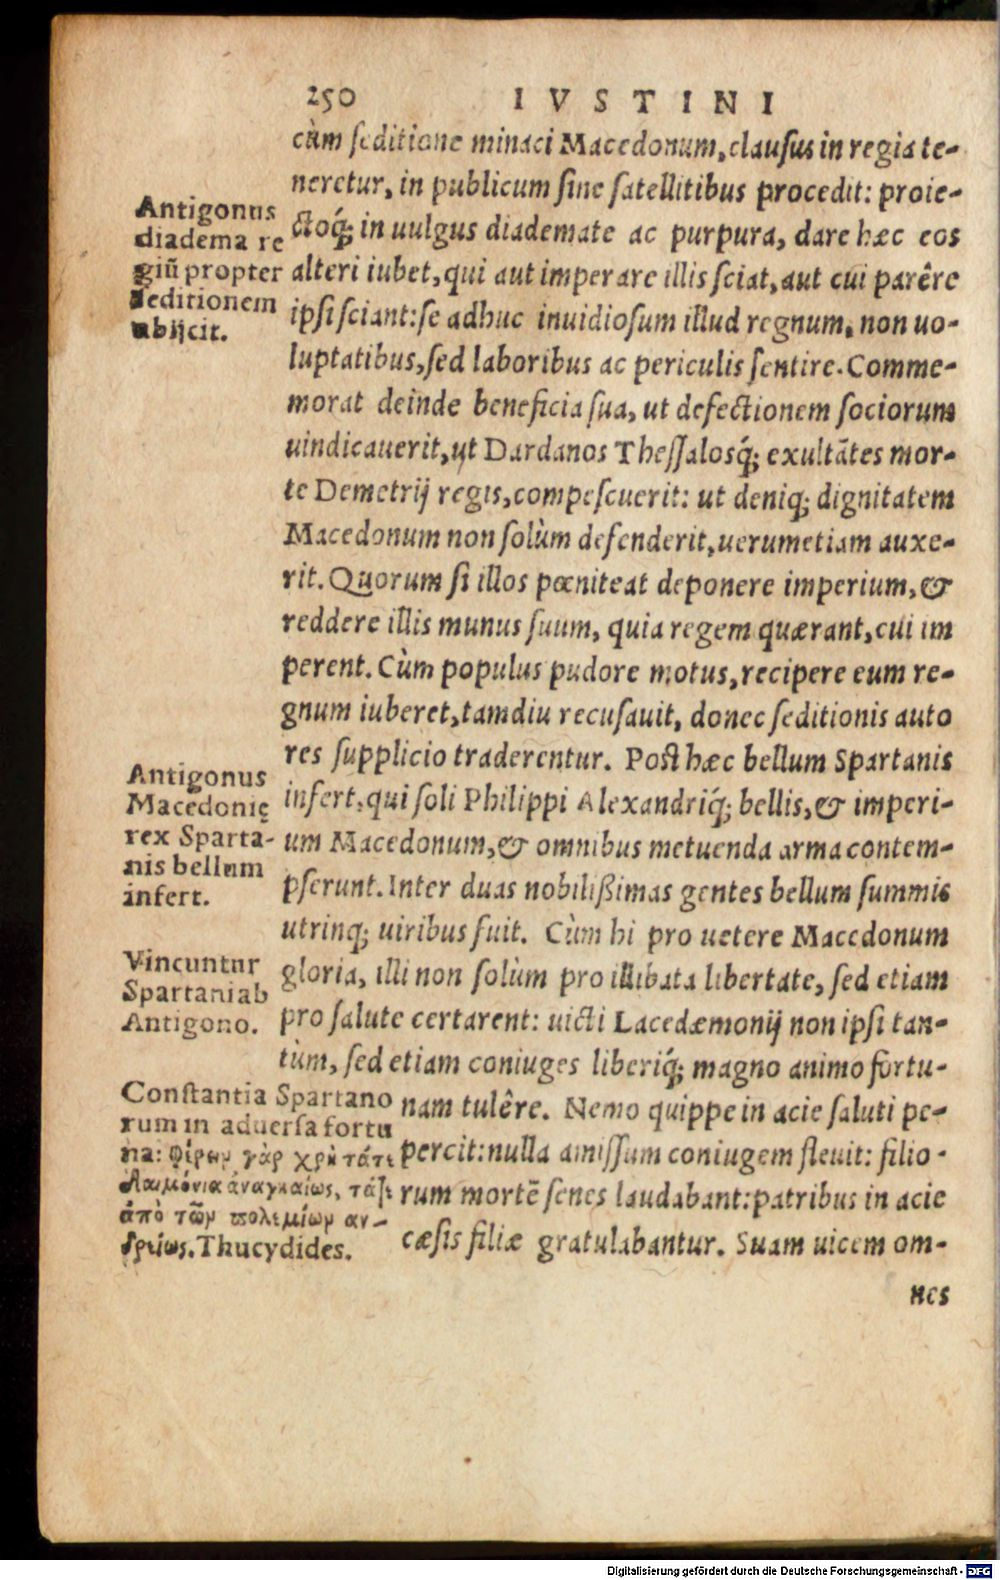 250 IVSTINI
cùm seditione minaci Macedonum, clausus in regia te-
neretur, in publicum sine satellitibus procedit: proie-
ctoq́; in uulgus diademate ac purpura, dare hæc eos
alteri iubet, qui aut imperare illis sciat, aut cui parêre
ipsi sciant: se adhuc inuidiosum illud regnum, non uo-
luptatibus, sed laboribus ac periculis sentire. Comme-
morat deinde beneficia sua, ut defectionem sociorum
uindicauerit, ut Dardanos Thessalosq́; exultãtes mor-
te Demetrij regis, compescuerit: ut deniq; dignitatem
Macedonum non solùm defenderit, uerumetiam auxe-
rit. Quorum si illos pœniteat deponere imperium, &
reddere illis munus suum, quia regem quærant, cui im
perent. Cùm populus pudore motus, recipere eum re-
gnum iuberet, tamdiu recusauit, donec seditionis auto
res supplicio traderentur. Post hæc bellum Spartanis
infert, qui soli Philippi Alexandriq́; bellis, & imperi-
um Macedonum, & omnibus metuenda arma contem-
pserunt. Inter duas nobilißimas gentes bellum summis
utrinq; uiribus fuit. Cùm hi pro uetere Macedonum
gloria, illi non solùm pro illibata libertate, sed etiam
pro salute certarent: uicti Lacedæmonij non ipsi tan-
tùm, sed etiam coniuges liberiq́; magno animo fortu-
nam tulêre. Nemo quippe in acie saluti pe-
percit: nulla amissum coniugem fleuit: filio-
rum mortẽ senes laudabant: patribus in acie
cæsis filiæ gratulabantur. Suam uicem om-
nes
Antigonus
diadema re
giũ propter
seditionem
abijcit.
Antigonus
Macedonię
rex Sparta-
nis bellum
infert.
Vincuntur
Spartani ab
Antigono.
Constantia Spartano
rum in aduersa fortu
na: φέρειν γὰρ χρὴ τά τε
δαιμόνια ἀναγκαίως, τά τε
ἀπὸ τῶν πολεμίων ἀν-
δρείως. Thucydides.
Digitalisierung gefördert durch die Deutsche Forschungsgemeinschaft - DFG